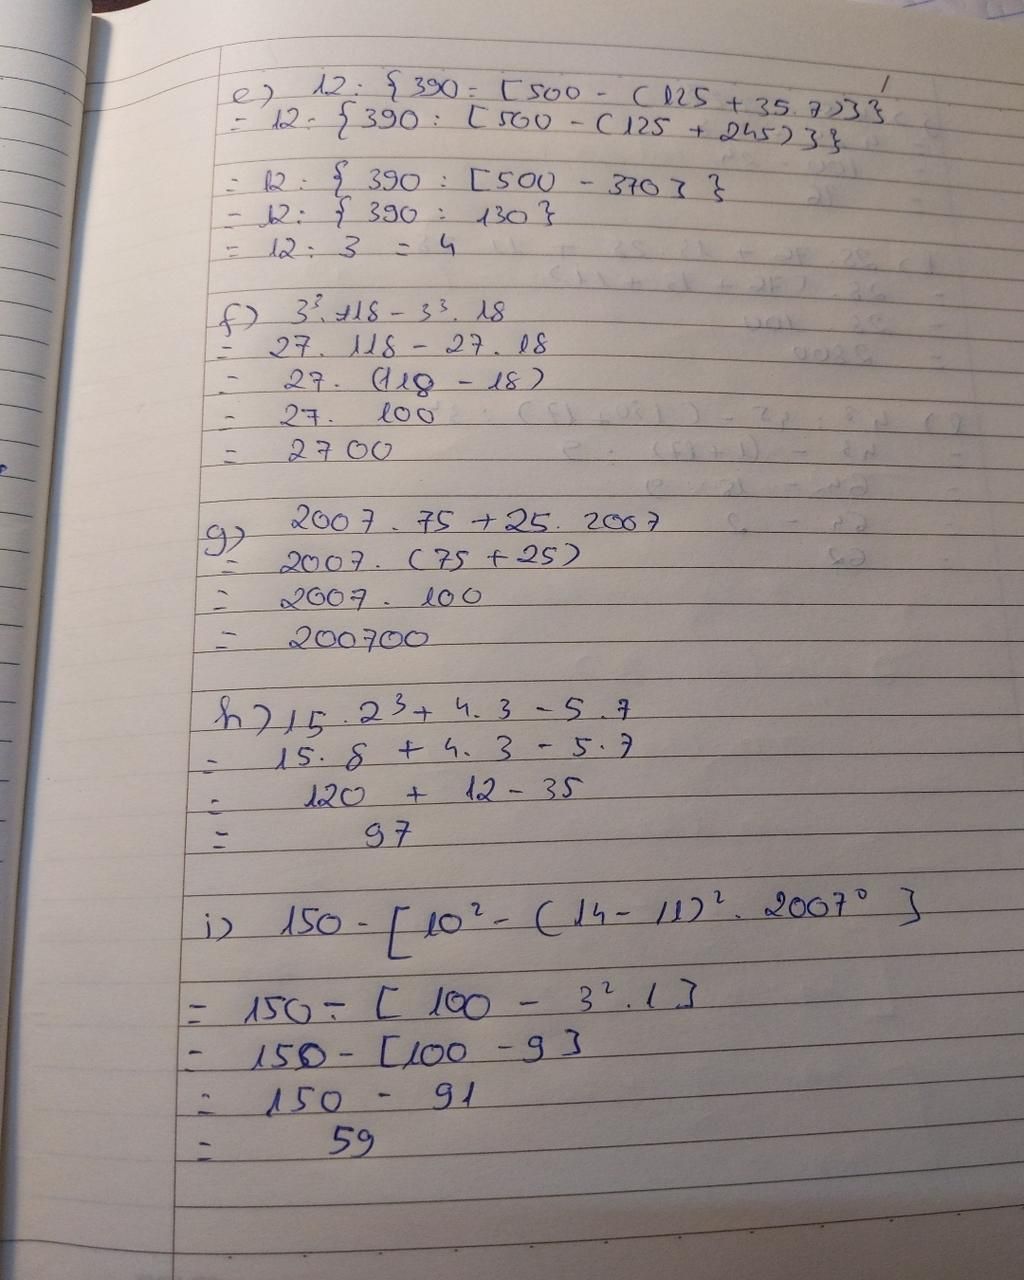 e) 12 : { 390 : [ 500 - ( 125 + 35 . 7 ) ] }
= 12 : { 390 : [ 500 - ( 125 + 245 ) ] }
= 12 : { 390 : [ 500 - 370 ] }
= 12 : { 390 : 130 }
= 12 : 3 = 4
f) 3³ . 118 - 3³ . 18
= 27 . 118 - 27 . 18
= 27 . ( 118 - 18 )
= 27 . 100
= 2700
g) 2007 . 75 + 25 . 2007
= 2007 . ( 75 + 25 )
= 2007 . 100
= 200700
h) 15 . 2³ + 4 . 3 - 5 . 7
= 15 . 8 + 4 . 3 - 5 . 7
= 120 + 12 - 35
= 97
i) 150 - [ 10² - ( 14 - 11 )² . 2007⁰ ]
= 150 - [ 100 - 3² . 1 ]
= 150 - [ 100 - 9 ]
= 150 - 91
= 59